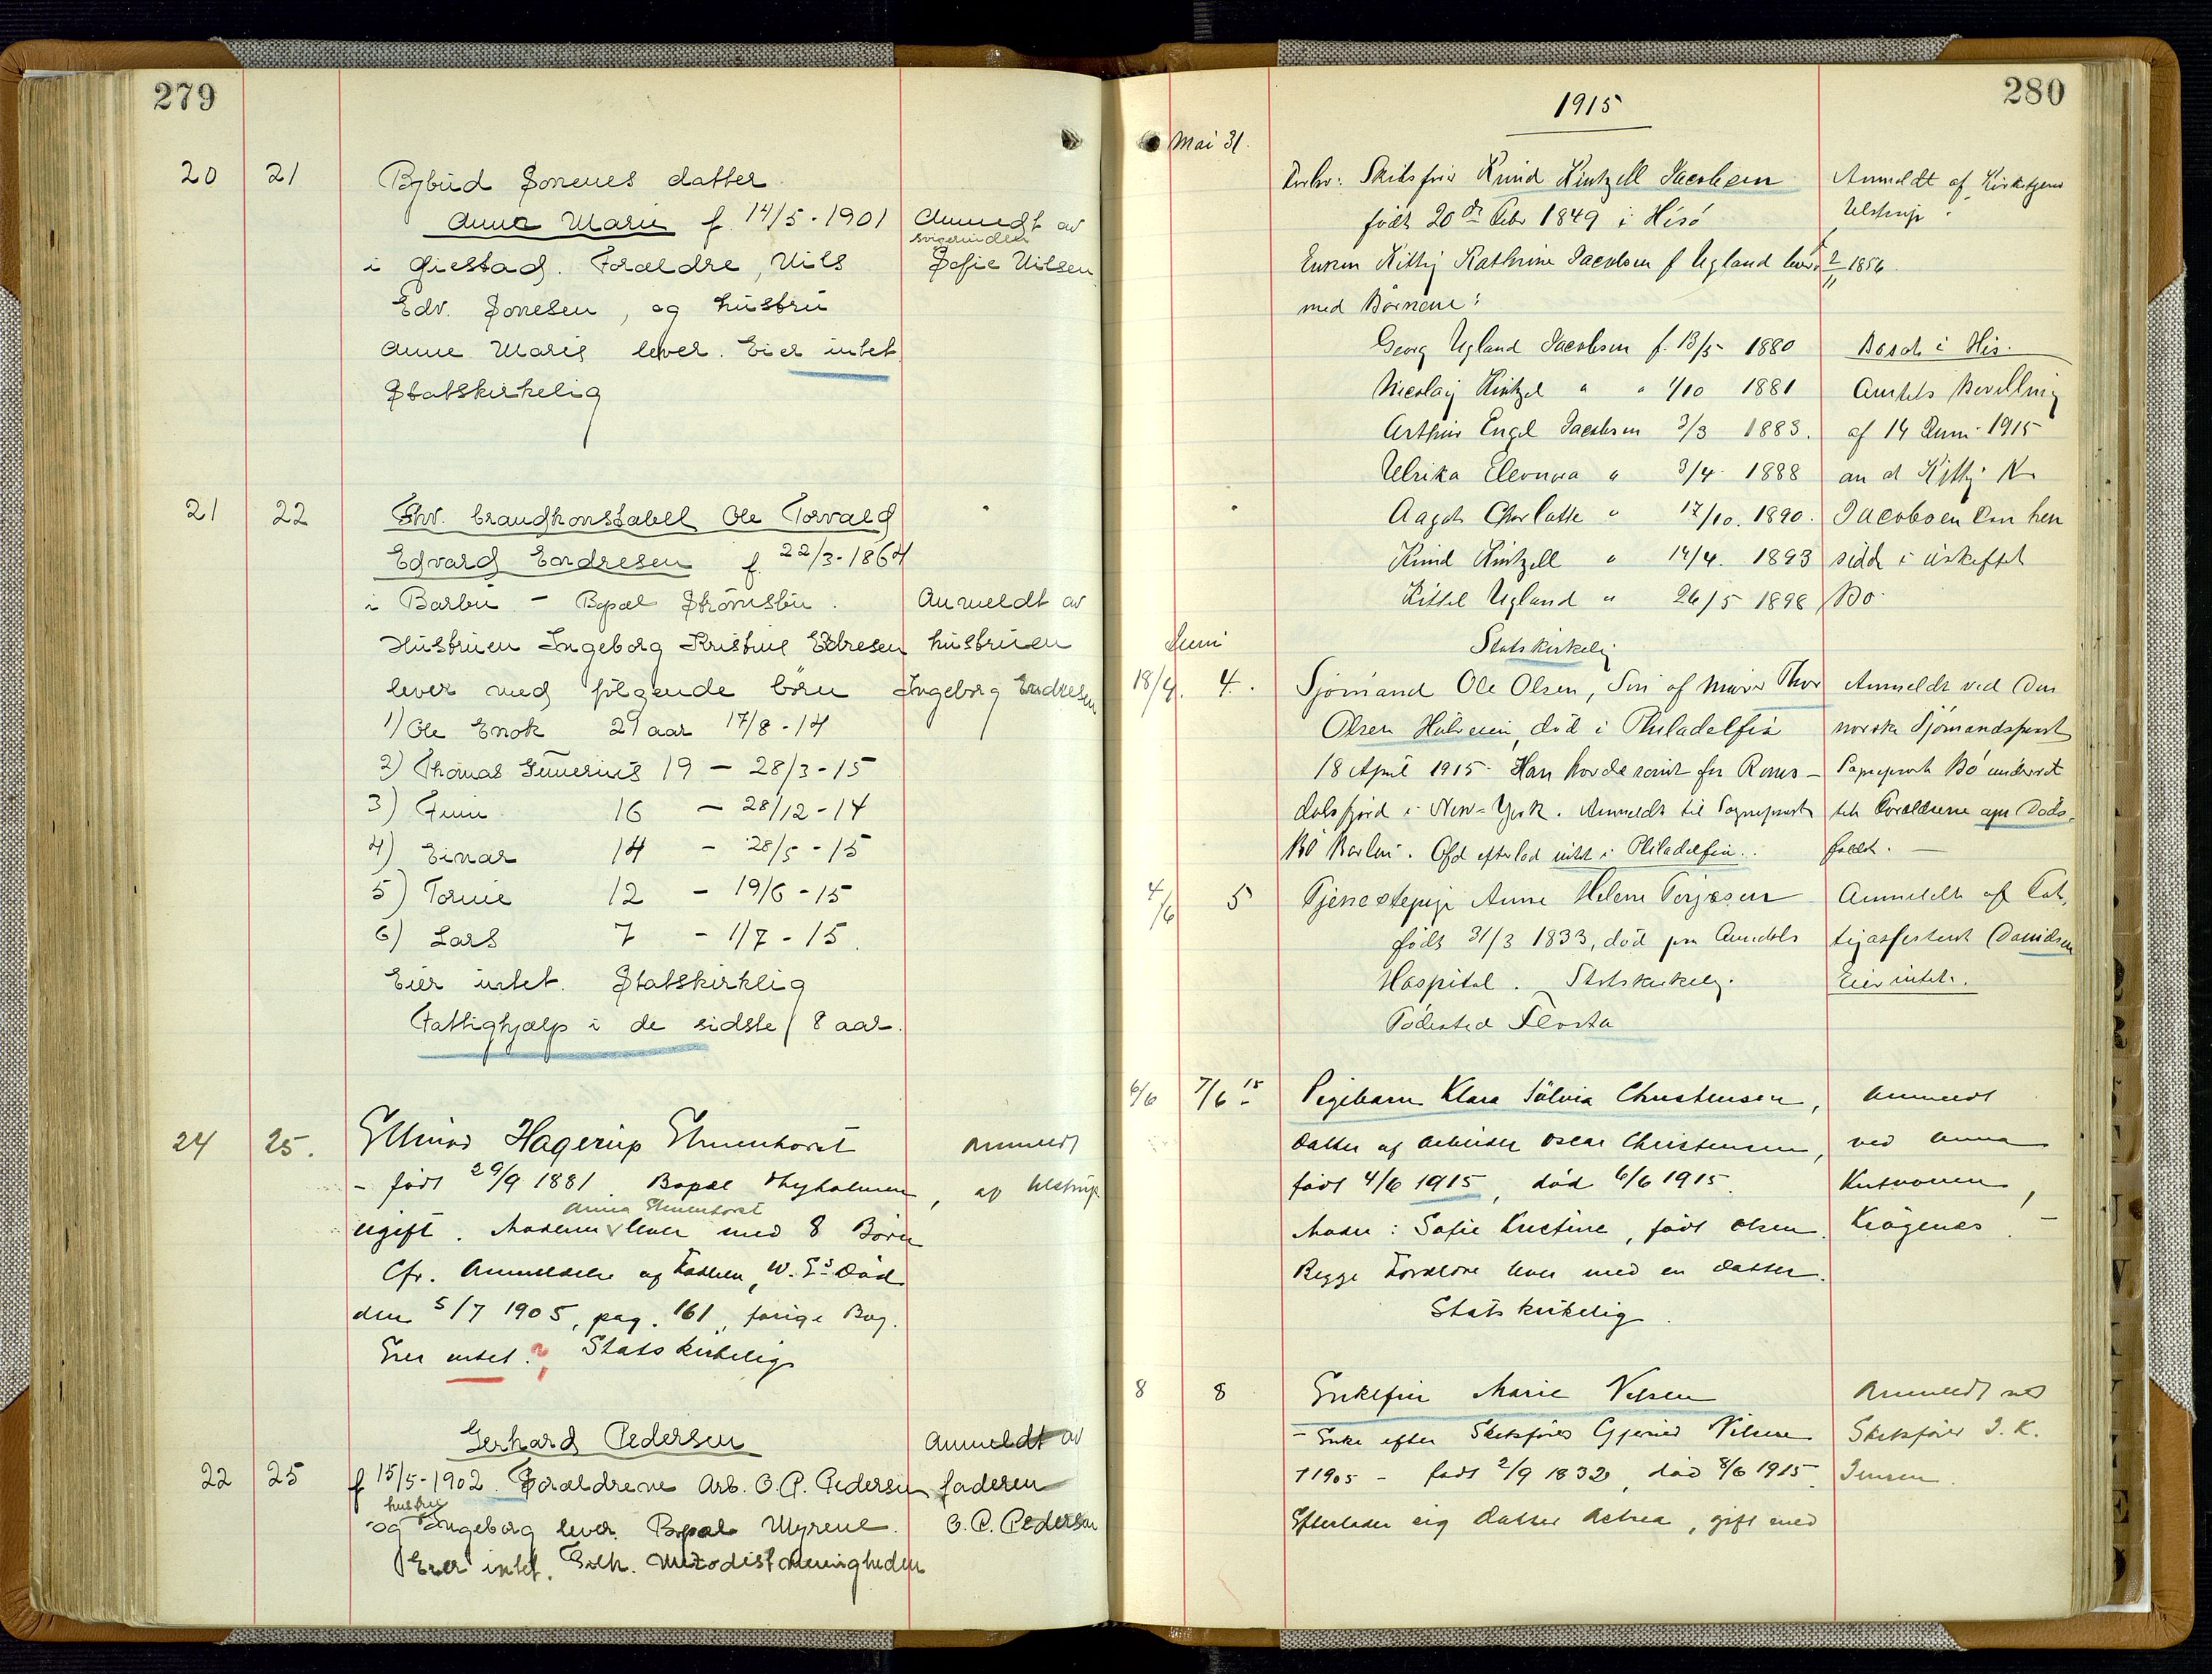 279
20 21 Bybud Jonenes datter
Anna Marie f. 14/5-1901 Anmeldt av
svigerinden
i Giestad. Foraldre, Nils Sofie Nilsen
Edv. Jonesen, og hustru
Anne Marie lever. Eier intet
Statskirkelig
21 22 Fhv. brandkonstabell Ole Torvald
Edvard Endresen f. 22/3-1864
i Barbu - Bopæl Strömsbu. Anmeldt av
Hustruen Ingeborg Kristine Edresen hustruen
lever med følgende börn Ingeborg Endresen
1) Ole Enok 21 aar 17/8-14
2) Thomas Gunerius 19 - 28/3-15
3) Finn 16 - 28/12-14
4) Einar 14 - 28/5-15
5) Tornie 12 - 19/6-15
6) Lars 7 - 1/7-15.
Eier intet. Statskirklig
Fattighjælp i de sidste 8 aar.
24 25. Hagerup Ehrenhorst Anmeldt
- født 29/9 1881. Bopæl Thyholmen, af Ulstrup
Anna Ehrenhorst
ugift. Moderen lever med 8 Børn
Cfr. Anmeldelse af Faderen, W. E's Død
den 5/7 1905, pag. 161, forige Bog.
Eier intet.? Statskirkelig
Gerhard Pedersen Anmeldt av
22 25 f 15/5-1902. Foraldrene Arb. O.P. Pedersen faderen
hustru
og Ingeborg lever. Bopæl Myrene. O.P. Pedersen
Eier intet. Metodistmenigheden
280
1915
Mai 31.
Skibsfører Knud Kintzell Jacobsen Anmeldt af Kirketjener
født 20de Febr 1849 i Hisö Ulstrup.
Enken Kitty Kathrine Jacobsen f Ugland lever 2/11 1856.
med Börnene:
Georg Ugland Jacobsen f. 13/5 1880 Bosch i His.
Nicolay Kintzel " " 4/10 1881 Amtets Bevilling
Arthur Engel Jacobsen 3/3 1883. af 14 Juni 1915
Ulrika Eleonora " 3/4 1888 Kitty K
Aagot Charlotte " 17/10. 1890. Jacobsen kan hen
Knud Kintzell " 14/4. 1893 sidde i uskiftet
Kittel Ugland " 26/5 1898 Bo.
Juni Statskirkelig
18/4. 4. Sjömand Ole Olsen, Sön af Murer Thor Anmeldt ved den
Olsen död i Philadelfia norske Sjömandsprest
18 April 1915. Han havde reist fra Roms- Sogneprest Bö underret
dalsfjord i New-York. Anmeldt til Sogneprest Forældrene om Döds
Bö Barbu. Afd efterlod intet i Philadelfia. faldet.
4/6 5 Tjenestepige Anne Helene Terjesen Anmeldt af Fat.
født 31/3 1833, död paa Arendals tigasforstand Danielsen
Hospital. Statskirkelig. Eier intet.
Födested Flosta
6/6 7/6 15 Pigebarn Klara Sölvia Christensen, Anmeldt
datter af Arbeider Oscar Christensen, ved Anna
født 4/6 1915, död 6/6 1915. Knutsonen,
Moder: Sofie Kristine, født Olsen. Krögenes.
Begge Foreldre lever med en datter.
Statskirkelig.
8 8 Enkefru Marie Nilsen Anmeldt ved
- Enke efter Skibsfører Gjerned Nilsen Skibsfører J.K.
† 1905 - født 2/9 1832, död 8/6 1915. Jensen.
Efterlader sig datter Astrea, gift med